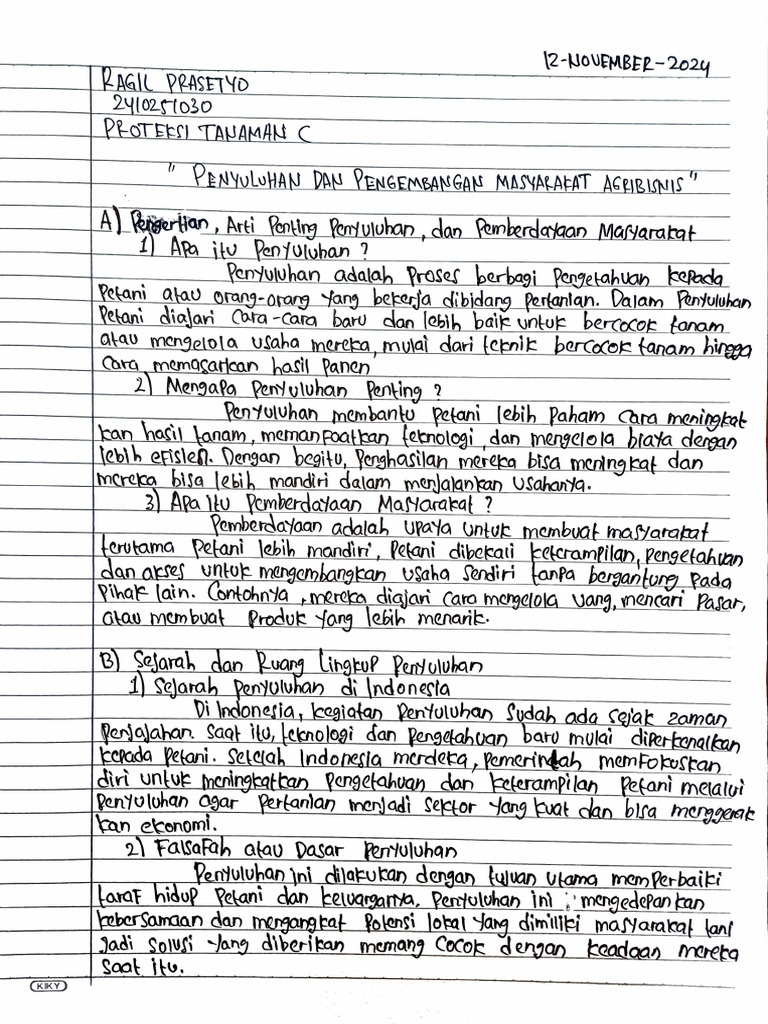 12-NOVEMBER-2024
RAGIL PRASETYO
2410251030
PROTEKSI TANAMAN C
" PENYULUHAN DAN PENGEMBANGAN MASYARAKAT AGRIBISNIS "
A) Pengertian, Arti Penting Penyuluhan, dan Pemberdayaan Masyarakat
1) Apa itu Penyuluhan ?
Penyuluhan adalah Proses berbagi Pengetahuan kepada
Petani atau orang-orang yang bekerja dibidang pertanian. Dalam Penyuluhan
Petani diajari cara-cara baru dan lebih baik untuk bercocok tanam
atau mengelola usaha mereka, mulai dari teknik bercocok tanam hingga
cara memasarkan hasil panen
2) Mengapa Penyuluhan Penting ?
Penyuluhan membantu petani lebih paham cara meningkat
kan hasil tanam, memanfaatkan teknologi, dan mengelola biaya dengan
lebih efisien. Dengan begitu, Penghasilan mereka bisa meningkat dan
mereka bisa lebih mandiri dalam menjalankan usahanya.
3) Apa itu Pemberdayaan Masyarakat ?
Pemberdayaan adalah upaya untuk membuat masyarakat
terutama Petani lebih mandiri, Petani dibekali keterampilan, pengetahuan
dan akses untuk mengembangkan usaha sendiri tanpa bergantung pada
Pihak lain. Contohnya, mereka diajari cara mengelola uang, mencari Pasar,
atau membuat Produk yang lebih menarik.
B) Sejarah dan Ruang Lingkup Penyuluhan
1) Sejarah penyuluhan di Indonesia
Di Indonesia, kegiatan Penyuluhan sudah ada sejak zaman
penjajahan. Saat itu, teknologi dan pengetahuan baru mulai diperkenalkan
kepada Petani. Setelah Indonesia merdeka, pemerintah memfokuskan
diri untuk meningkatkan Pengetahuan dan keterampilan Petani melalui
Penyuluhan agar Pertanian menjadi sektor yang kuat dan bisa menggerak
kan ekonomi.
2) Falsafah atau Dasar Penyuluhan
Penyuluhan ini dilakukan dengan tujuan utama memperbaiki
taraf hidup Petani dan keluarganya. Penyuluhan ini mengedepankan
kebersamaan dan mengangkat Potensi lokal yang dimiliki masyarakat tani
Jadi solusi yang diberikan memang cocok dengan keadaan mereka
saat itu.
KIKY